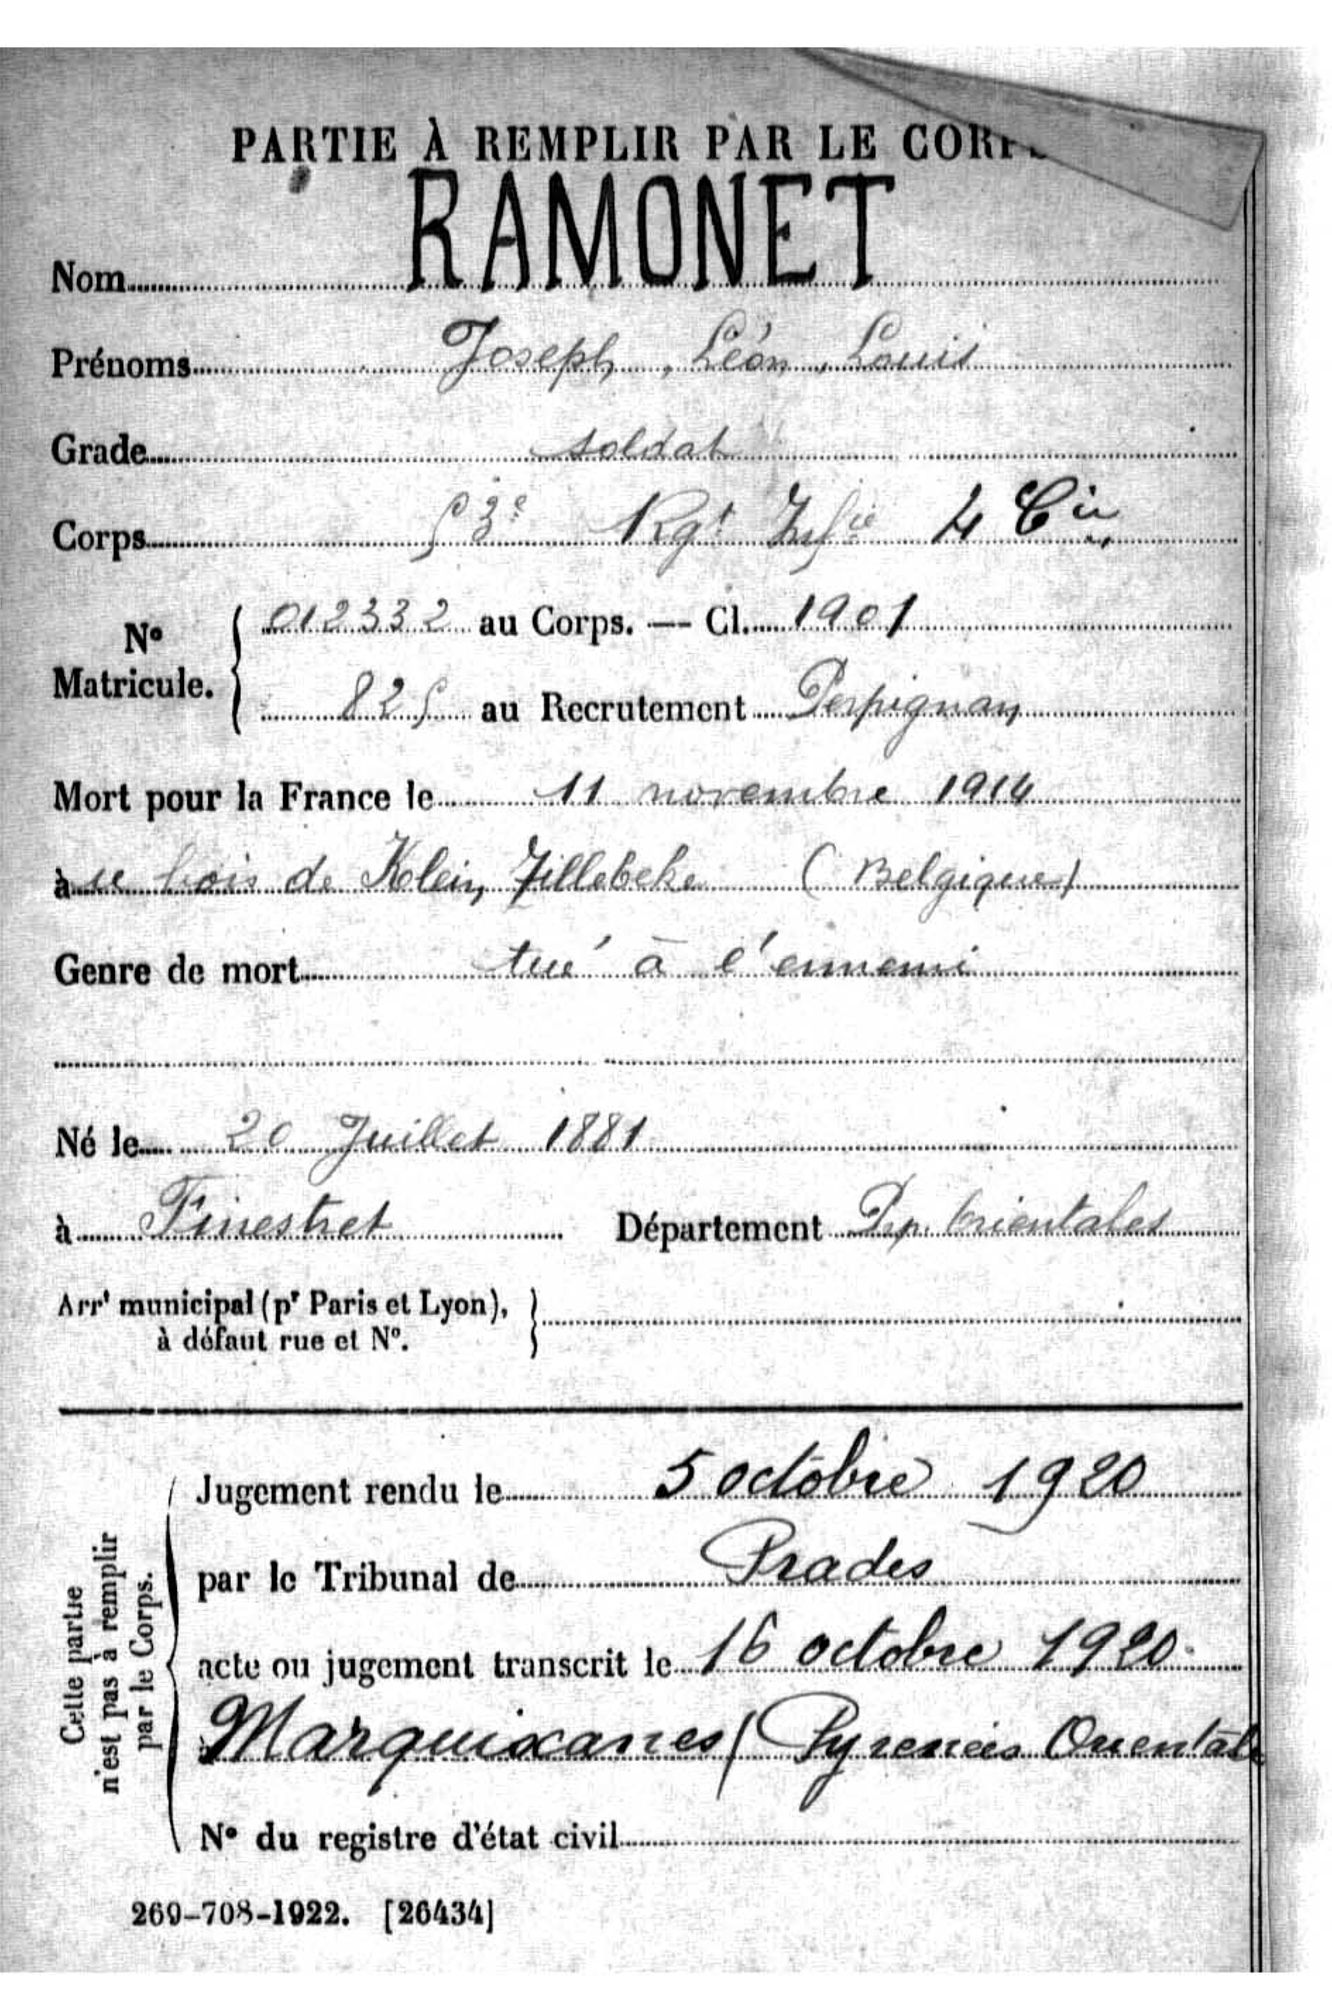 PARTIE À REMPLIR PAR LE CORPS
Nom RAMONET
Prénoms Joseph, Léon, Louis
Grade soldat
Corps 53e Rgt Infie 4 Cie
No Matricule. { 012332 au Corps. — Cl. 1901
825 au Recrutement Perpignan
Mort pour la France le 11 novembre 1914
à u bois de Klein Zillebeke (Belgique)
Genre de mort tué à l'ennemi
Né le 20 Juillet 1881
à Finestret Département Pyr. Orientales
Arrt municipal (pr Paris et Lyon),
à défaut rue et No.
Cette partie n'est pas à remplir par le Corps.
Jugement rendu le 5 octobre 1920
par le Tribunal de Prades
acte ou jugement transcrit le 16 octobre 1920.
à Marquixanes (Pyrenées Orientale
No du registre d'état civil
269-708-1922. [26434]